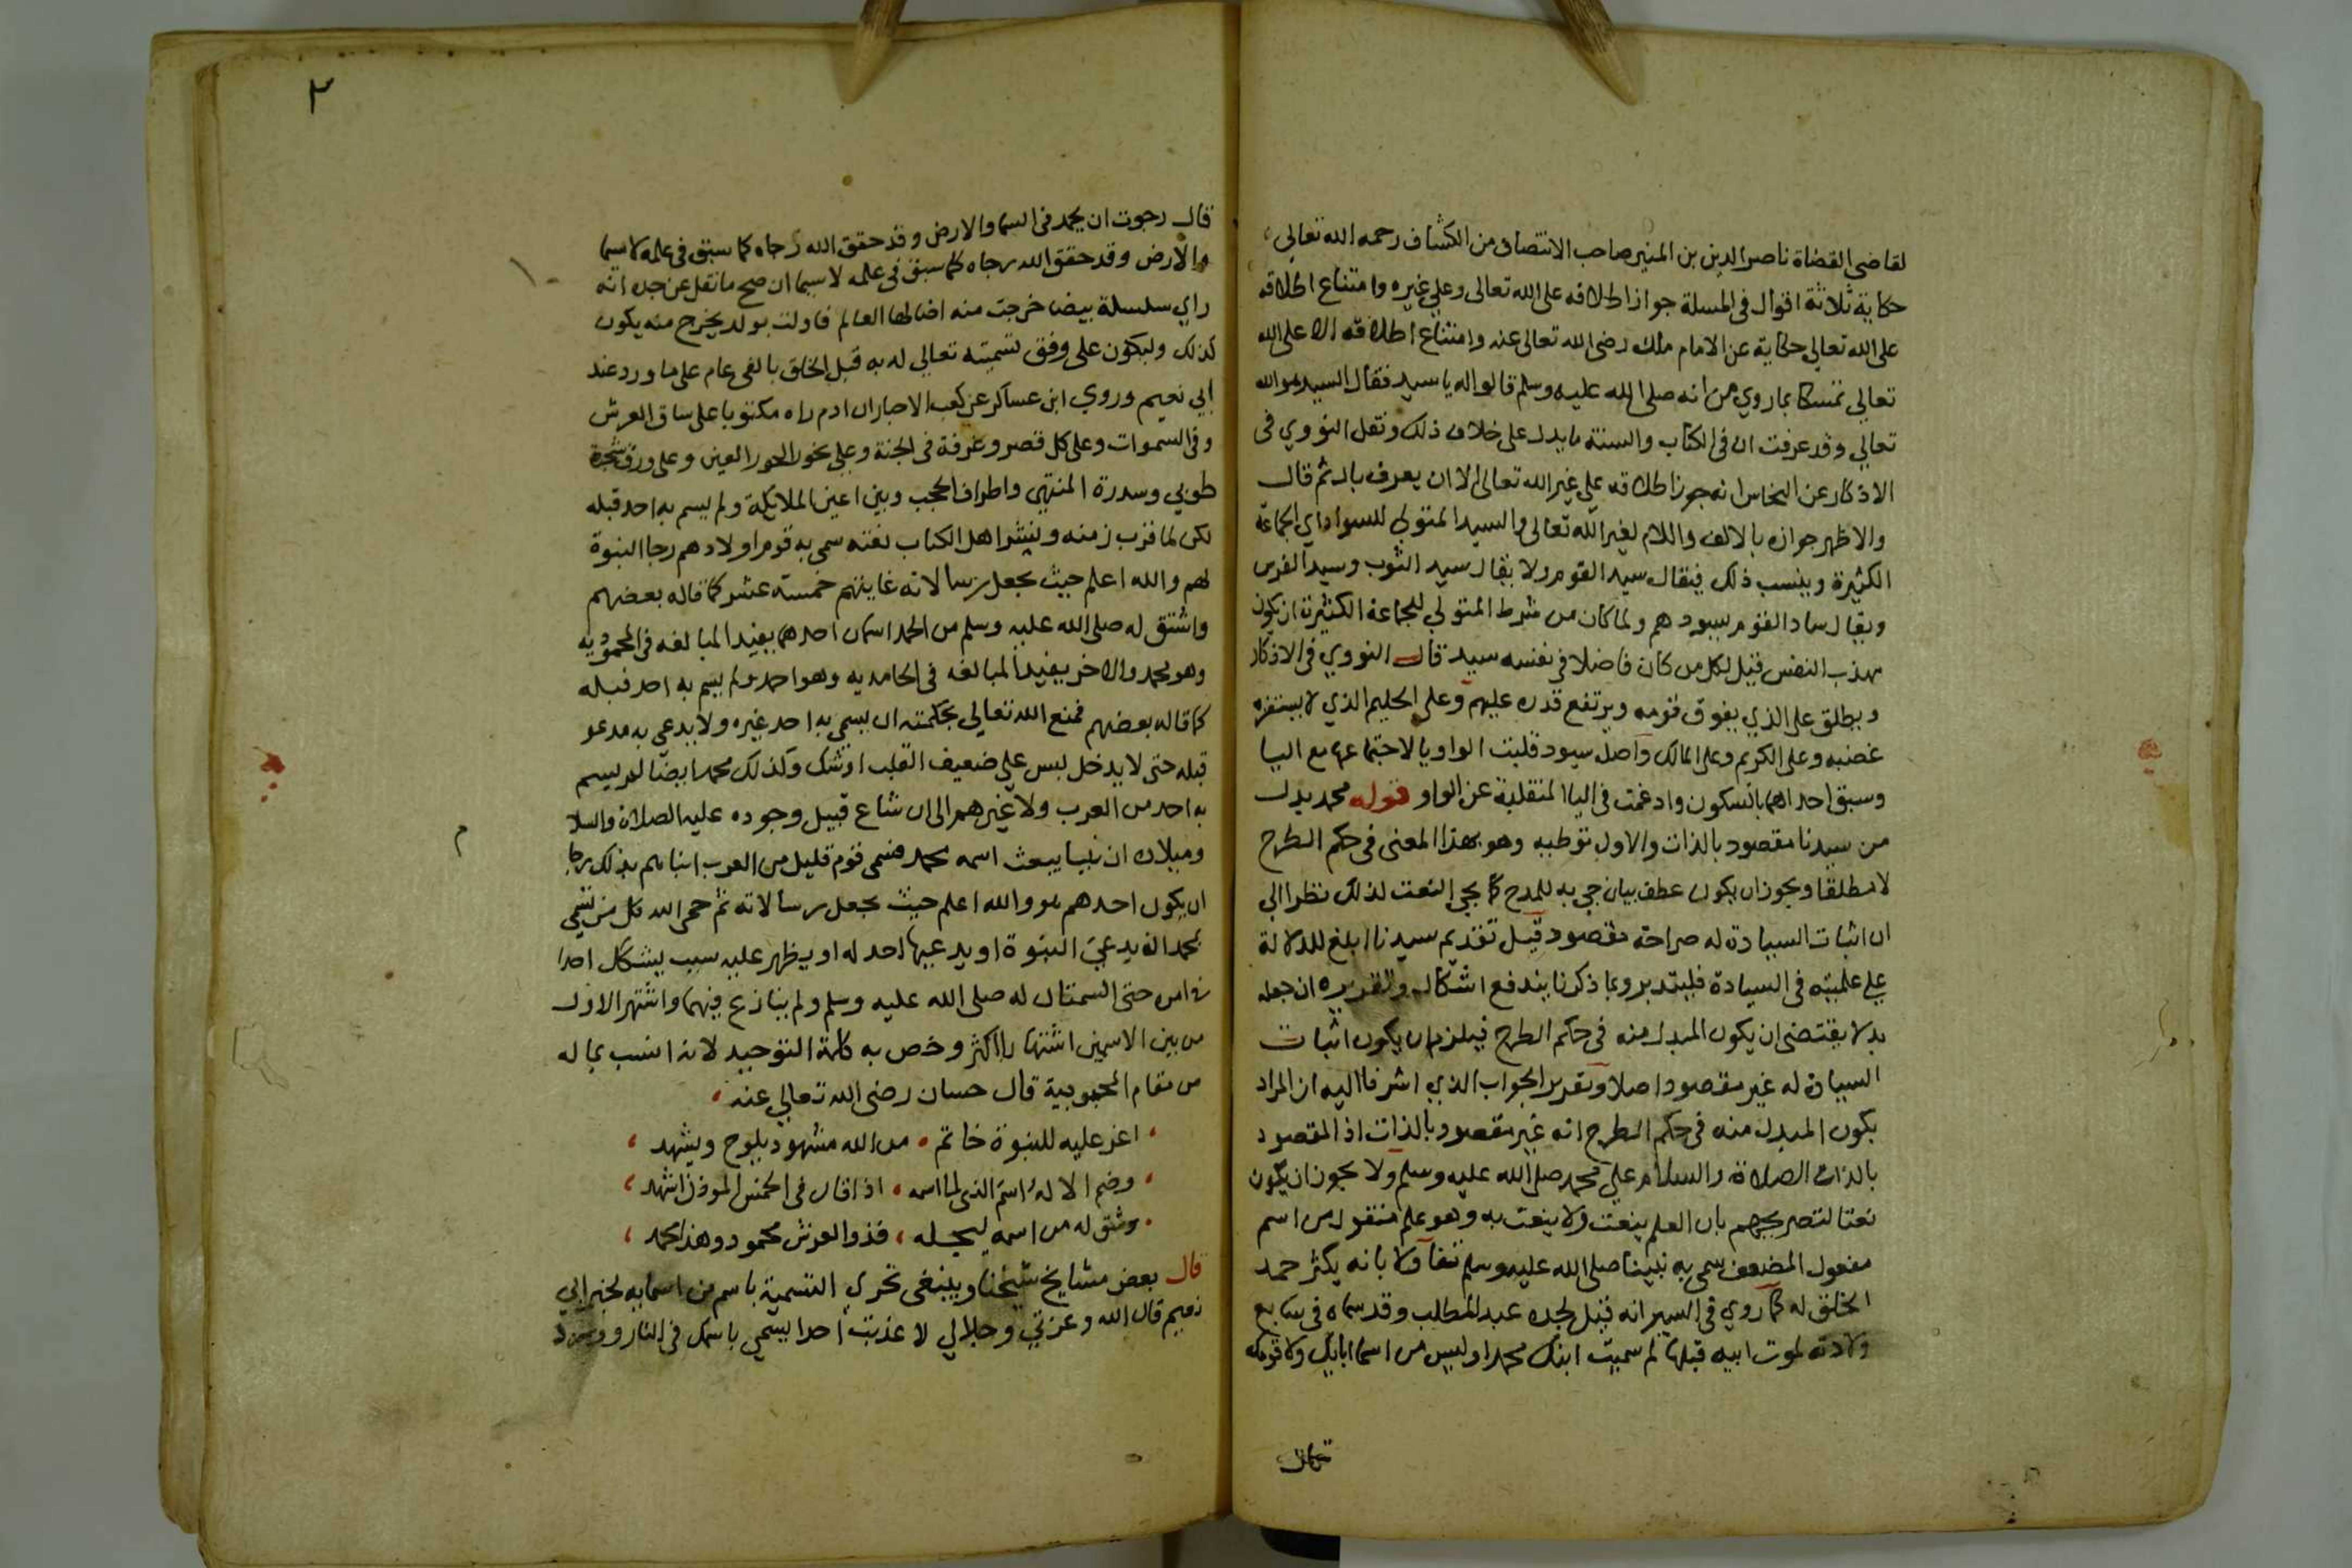 لقاضي القضاة ناصر الدين بن المنير صاحب الانتصاف من الكشاف رحمه الله تعالي
حكاية ثلاثة اقوال في المسلة جواز اطلاقه على الله تعالى وعلي غيره وامتناع اطلاقه
على الله تعالي حكاية عن الامام ملك رضى الله تعالى عنه وامتناع اطلاقه الا على الله
تعالي تمسكا بماروي من انه صلى الله عليه وسلم قالوا له يا سيد فقال السيد هو الله
تعالي وقد عرفت ان في الكتاب والسنة ما يدل على خلاف ذلك ونقل النووي في
الاذكار عن النحاس انه جوز اطلاقه علي غير الله تعالى الا ان يعرف بال ثم قال
والاظهر جوازه بالالف واللام لغير الله تعالى والسيد المتولي للسواد اي الجماعة
الكثيرة وينسب ذلك فيقال سيد القوم ولا يقال سيد الثوب وسيد الفرس
ويقال ساد القوم يسودهم ولما كان من شرط المتولي للجماعة الكثيرة ان يكون
مهذب النفس قيل لكل من كان فاضلا في نفسه سيد قال النووي في الاذكار
ويطلق على الذي يفوق قومه ويرتفع قدره عليهم وعلى الحليم الذي لا يستفزه
غضبه وعلى الكريم وعلى المالك واصله سيود قلبت الواو يا لاجتماعها مع اليا
وسبق احداهما بالسكون وادغمت في اليا المنقلبة عن الواو قوله محمد بدل
من سيدنا مقصود بالذات والاول توطيه وهو بهذا المعنى في حكم الطرح
لا مطلقا ويجوز ان يكون عطف بيان جي به للمدح كما يجي النعت لذلك نظرا الي
ان اثبات السيادة له صراحة مقصود قيل تقديم سيدنا ابلغ للدلالة
علي علميته في السيادة فليتدبر وبما ذكرنا يندفع اشكال وتقريره ان جعله
بدلا يقتضى ان يكون المبدل منه في حكم الطرح فيلزم ان يكون اثبات
السيادة له غير مقصود اصلا وتقرير الجواب الذي اشرنا اليه ان المراد
بكون المبدل منه في حكم الطرح انه غير مقصود بالذات اذ المقصود
بالذات الصلاة والسلام علي محمد صلى الله عليه وسلم ولا يجوز ان يكون
نعتا لتصريحهم بان العلم ينعت ولا ينعت به وهو علم منقول من اسم
مفعول المضعف سمي به نبينا صلى الله عليه وسلم تفاولا بانه يكثر حمد
الخلق له كما روي في السير انه قيل لجده عبد المطلب وقد سماه في سابع
ولادته لموت ابيه قبلها لم سميت ابنك محمدا وليس من اسما ابايك ولا قومك
قال رجوت ان يحمد في السما والارض وقد حقق الله رجاه كما سبق في علمه لاسيما
والارض وقد حقق الله رجاه كما سبق في علمه لاسيما ان صح ما نقل عن جده انه
راي سلسلة بيضا خرجت منه اضا لها العالم فاولت بولد يخرج منه يكون
كذلك وليكون على وفق تسميته تعالي له به قبل الخلق بالفي عام على ما ورد عند
ابي نعيم وروي ابن عساكر عن كعب الاحبار ان ادم راه مكتوبا على ساق العرش
وفي السموات وعلى كل قصر وغرفة في الجنة وعلي نحور الحور العين وعلى ورق شجرة
طوبي وسدرة المنتهي واطراف الحجب وبين اعين الملائكة ولم يسم به احد قبله
لكن لما قرب زمنه ونشر اهل الكتاب نعته سمي به قوم اولادهم رجا النبوة
لهم والله اعلم حيث يجعل رسالاته غايتهم خمسة عشر كما قاله بعضهم
واشتق له صلى الله عليه وسلم من الحمد اسمان احدهما يفيد المبالغه في المحموديه
وهو محمد والاخر يفيد المبالغه في الحامديه وهو احمد ولم يسم به احد قبله
كما قاله بعضهم فمنع الله تعالي بحكمته ان يسمي به احد غيره ولا يدعى به مدعو
قبله حتى لا يدخل لبس علي ضعيف القلب او شك وكذلك محمد ايضا لم يسم
به احد من العرب ولا غيرهم الى ان شاع قبيل وجوده عليه الصلاة والسلا
وميلاده ان نبيا يبعث اسمه محمد فسمى قوم قليل من العرب ابناهم بذلك رجا
ان يكون احدهم هو والله اعلم حيث يجعل رسالاته ثم حمى الله كل من تسمي
بمحمد ان يدعي النبوة او يدعيها احد له او يظهر عليه سبب يشكك احدا
في امره حتى السمتان له صلى الله عليه وسلم ولم ينازع فيهما واشتهر الاول
من بين الاسمين اشتهارا اكثر وخص به كلمة التوحيد لانه انسب بما له
من مقام المحبوبية قال حسان رضى الله تعالي عنه
اغر عليه للنبوة خاتم من الله مشهود يلوح ويشهد
وضم الاله اسم النبي لما اسمه اذا قال في الخمس الموذن اشهد
وشق له من اسمه ليجله فذو العرش محمود وهذا محمد
قال بعض مشايخ شيخنا وينبغي تحري التسمية باسم من اسمايه لخبر ابي
نعيم قال الله وعزتي وجلالي لا عذبت احدا يسمي باسمك في النار وورد